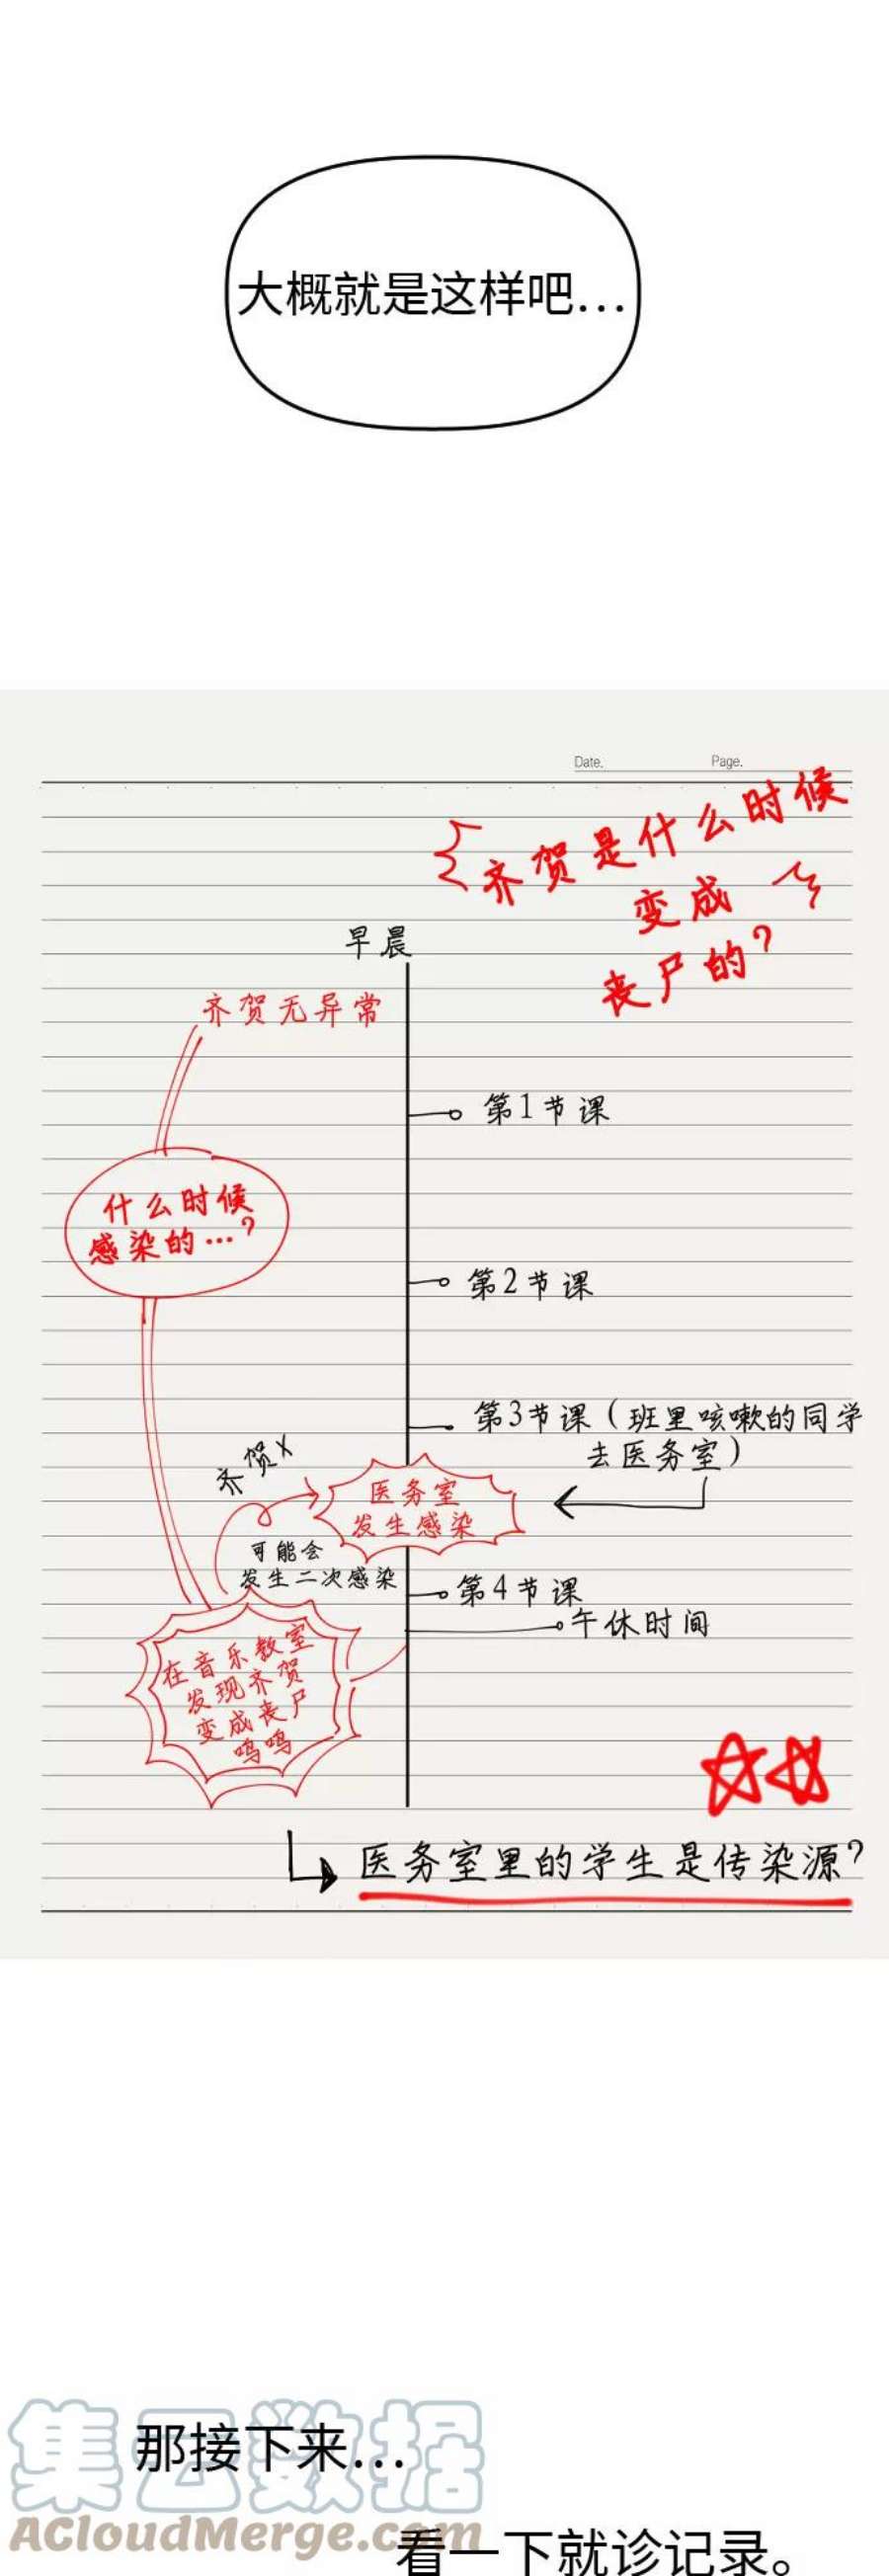 大概就是这样吧...
Date.
Page.
齐贺是什么时候
变成
丧尸的?
早晨
齐贺无异常
第1节课
什么时候
感染的...?
第2节课
第3节课(班里咳嗽的同学
去医务室)
齐贺X
医务室
发生感染
可能会
发生二次感染
第4节课
午休时间
在音乐教室
发现齐贺
变成丧尸
呜呜
医务室里的学生是传染源?
那接下来...
集云数据
ACloudMerge.com
看一下就诊记录。